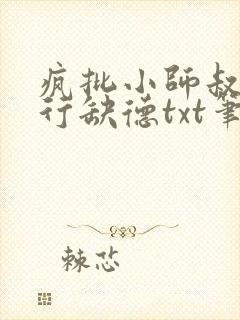 疯批小师叔
行缺德txt笔
棘芯